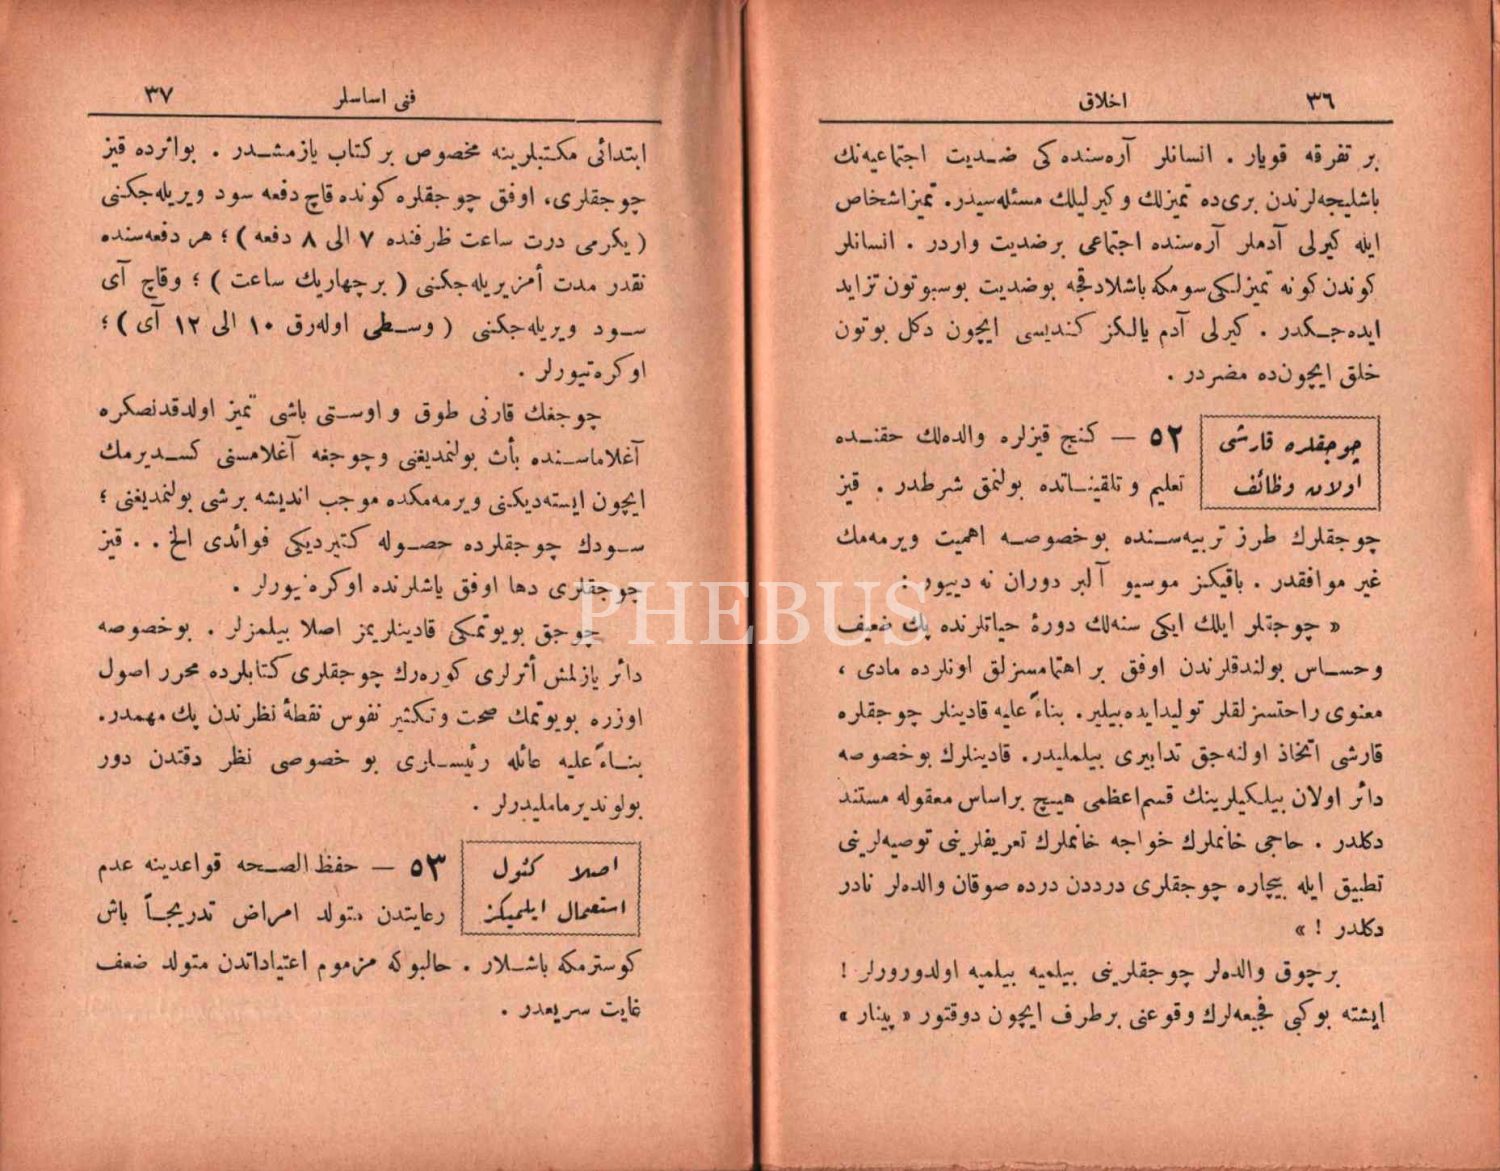 ٣٦ اخلاق
بر تفرقه قویار . انسانلر آره‌سنده كی ضـدیت اجتماعیه‌نك
باشلیجه‌لرندن بری‌ده تمیزلك و كیرلیلك مسئله‌سیدر. تمیزاشخاص
ایله كیرلی آدملر آره‌سنده اجتماعی برضدیت واردر . انسانلر
كوندن كونه تمیزلكی سومكه باشلادقجه بوضدیت بوسبوتون تزاید
ایده‌جـكدر . كیرلی آدم یالكز كندیسی ایچون دكل بوتون
خلق ایچون‌ده مضردر .
چوجقلره قارشی
اولان وظائف
٥٢ — كنج قیزلره والده‌لك حقنـده
تعلیم و تلقینـاتده بولنمق شرطدر . قیز
چوجقلرك طرز تربیه‌سـنده بوخصوصـه اهمیت ویرمه‌مك
غیر موافقدر . باقیكز موسیو آلبر دوران نه دییور :
« چوجقلر ایلك ایكی سنه‌لك دورهٔ حیاتلرنده پك ضعیف
و حسـاس بولندقلرندن اوفق بر اهتمامسزلق اونلرده مادی ،
معنوی راحتسزلقلر تولیدایده‌بیلیر. بناءً علیه قادینلر چوجقلره
قارشی اتخاذ اولنه‌جق تدابیری بیلملیدر. قادینلرك بوخصوصه
دائر اولان بیلكیلرینك قسم‌اعظمی هیـچ براساس معقوله مستند
دكلدر . حاجی خانملرك خواجه خانملرك تعریفلرینی توصیه‌لرینی
تطبیق ایله بیچاره چوجقلری درددن درده صوقان والده‌لر نادر
دكلدر ! »
برچوق والده‌لر چوجقلرینی بیلمیه بیلمیه اولدورورلر !
ایشته بوكبی فجیعه‌لرك وقوعنی برطرف ایچون دوقتور « پینار »
فنی اساسلر ٣٧
ابتدائی مكتبلرینه مخصوص بر كتاب یازمشـدر . بواثرده قیز
چوجقلری، اوفق چوجقلره كونده قاچ دفعه سود ویریله‌جكنی
( یكرمی درت ساعت ظرفنده ٧ الی ٨ دفعه ) ؛ هر دفعه‌سنده
نقدر مدت أمزیریله‌جكنی ( برچهاریك ساعت ) ؛ وقاچ آی
سـود ویریله‌جكنی ( وسـطی اوله‌رق ١٠ الی ١٢ آی ) ؛
اوكره‌تیورلر .
چوجغك قارنی طوق و اوسـتی باشی تمیز اولدقدنصكره
آغلاماسـنده بأث بولنمدیغنی وچوجغه آغلامسنی كسـدیرمك
ایچون ایسته‌دیكنی ویرمه‌مكده موجب اندیشه برشی بولنمدیغنی ؛
سـودك چوجقلرده حصـوله كتیردیكی فوائدی الخ . . قیز
چوجقلری دها اوفق یاشلرنده اوكره‌نیورلر .
PHEBUS
چوجق بویوتمكی قادینلریمز اصلا بیلمزلر . بوخصوصه
دائر یازلمش أثرلری كوره‌رك چوجقلری كتابلرده محرر اصول
اوزره بویوتمك صحت وتكثیر نفوس نقطهٔ نظرندن پك مهمدر.
بنـاءً علیه عائله رئیسـلری بو خصوصی نظر دقتدن دور
بولوندیرماملیدرلر .
اصلا كئول
استعمال ایلمیكز
٥٣ — حفظ الصـحه قواعدینه عدم
رعایتدن متولد امراض تدریجـاً باش
كوسترمكه باشـلار . حالبوكه مزموم اعتیاداتدن متولد ضعف
غایت سریعدر .